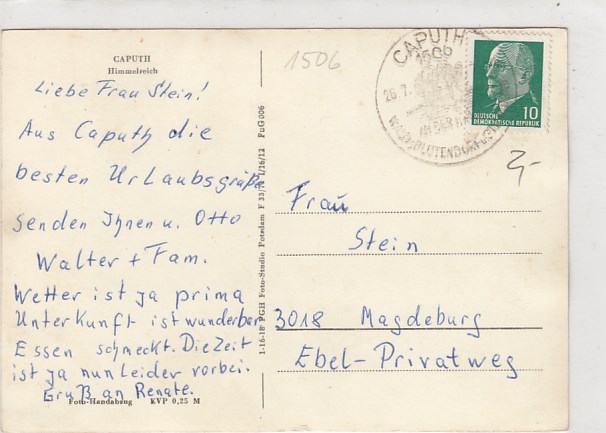 CAPUTH
Himmelreich
Liebe Frau Stein!
Aus Caputh die
besten Urlaubsgrüße
senden Ihnen u. Otto
Walter + Fam.
Wetter ist ja prima
Unterkunft ist wunderbar
Essen schmeckt. Die Zeit
ist ja nun leider vorbei.
Gruß an Renate.
Foto-Handabzug KVP 0,25 M
1-16-18 PGH Foto-Studio Potsdam F 1/16/12 FuG 006
1506
CAPUTH
1506
26.7.
BLÜTENDORF
10
DEUTSCHE
DEMOKRATISCHE REPUBLIK
2,-
Frau
Stein
3018 Magdeburg
Ebel-Privatweg